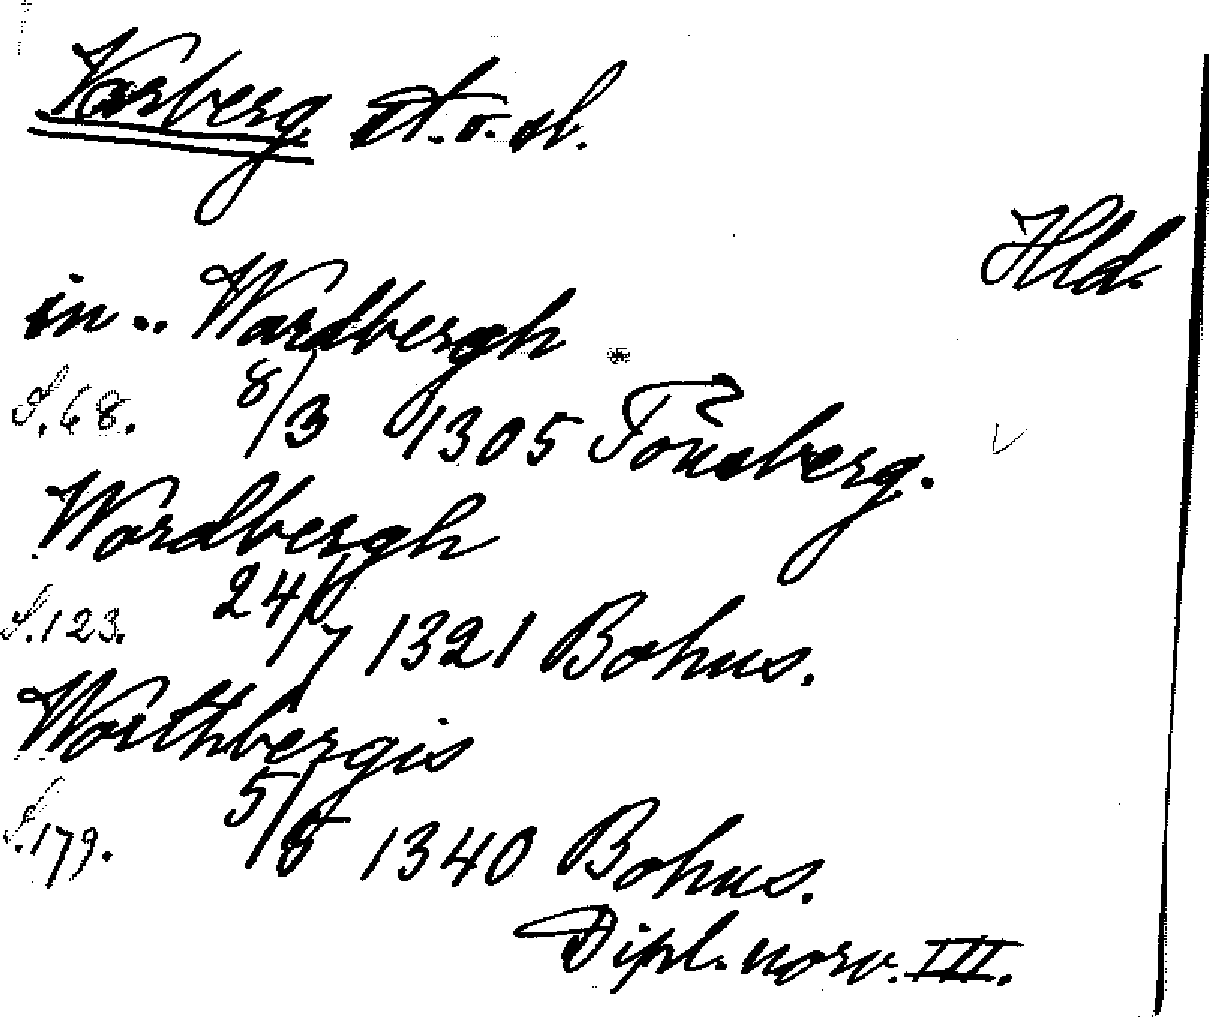 Varberg st. o. sl.
Hld.
in .. Wardbergh
S. 68. 8/3 1305 Tönsberg.
Wardbergh
S. 123. 24/7 1321 Bohus.
Warthbergis
S. 179. 5/8 1340 Bohus.
Dipl. norv. III.